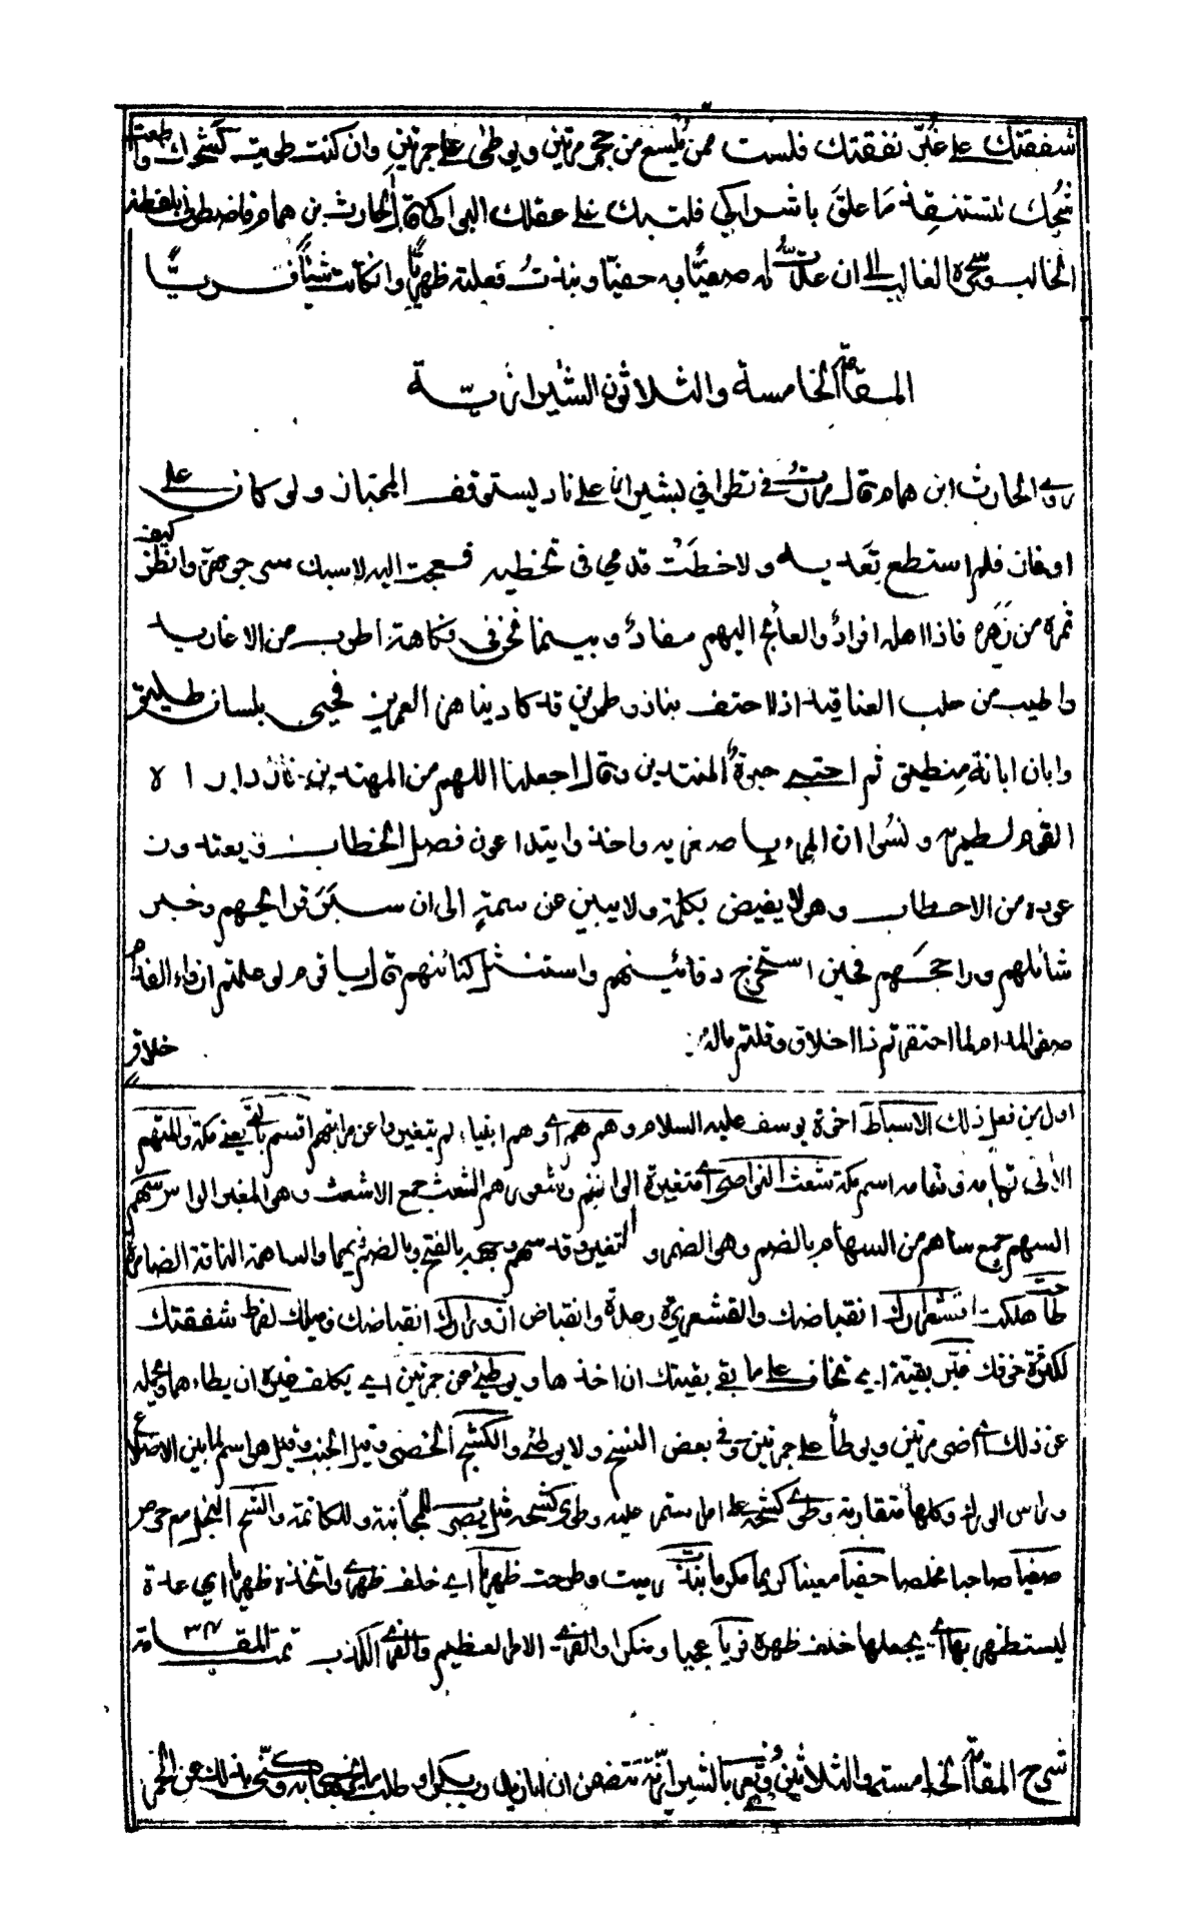 شفقتك على غُبّر نفقتك فلست ممن يُلسع من جحر مرتين ويوطئ على جمرتين وان كنت طويت كشحك واطعت
شحك لتستنقذ ما علق باشراكي فلتبك على عقلك البواكي قال الحارث بن همام فاضطرني بلفظه
الخالب وسحره الغالب الى ان عدت له صفيّا وبه حفيّا ونبذت فعلته ظهريّا وان كانت شيئا فريّا
المقامة الخامسة والثلاثون الشيرازيّة
روى الحارث ابن همام قال مررت في تطوافي بشيراز على ناد يستوقف المجتاز ولو كان على
اوفاز فلم استطع تعديه ولا خطت قدمي في تخطيه فعجت اليه لاسبك سر جوهره وانظر كيف
ثمره من زهره فاذا اهله افراد والعائج اليهم مفاد وبينما نحن في فكاهة اطرب من الاغاريد
واطيب من حلب العناقيد اذ احتف بنا ذو طمرين قد كاد يناهز العمرين فحيى بلسان طليق
وابان ابانة منطيق ثم احتبى حبوة المنتدين وقال اجعلنا اللهم من المهتدين فازدراه
القوم لطمريه ونسوا ان المرء باصغريه واخذوا يتداعون فصل الخطاب ويعتدون
عوده من الاحطاب وهو لا يفيض بكلمة ولا يبين عن سمة الى ان سبر قرائحهم وخبر
شائلهم وراجحهم فحين استخرج دفائنهم واستنثل كنائنهم قال يا قوم لو علمتم ان وراء الفدام
صفو المدام لما احتقرتم ذا اخلاق وقلتم ماله
خلاق
اول من فعل ذلك الاسباط اخوة يوسف عليه السلام وهم هم اى وهم انبياء لم يتغيروا عن مراتبهم اقسم بالتى يعني مكة والمتهم
الآتى تهامه وتهامه اسم مكة شعث النواصى اى متغيرة الوانهم وشعورهم الشعث جمع الاشعث وهو المغبر الراس سهم
السهم جمع ساهم من السهام بالضم وهو الضمر والتغير وقد سهم وجهه بالفتح وبالضم فيهما والساهمة الناقة الضامرة
طاحت هلكت اقشعرارك انقباضك والقشعريرة رعدة وانقباض ازورارك انقباضك وميلك لفرط شفقتك
لكثرة خوفك غبّر بقية اى تخاف على ما بقى بقيتك ان اخذها ويوطئ عن جمرتين اى يكلف غيره ان يطاءهما ويحمله
عن ذلك اى اضر مرتين ويوطأ على جمرتين وفي بعض النسخ ولا يوطئ والكشح الخصر وقيل الجنب وقيل هو اسم لما بين الاضلاع
وراس الورك وكلها متقاربة وطوى كشحه على امر استمر عليه وطوى كشحه مثل يضرب للمجانبة وللكاتمة والشح البخل مع حرص
صفيا صاحبا مخلصا حفيا معينا كريما مكرما نبذت رميت وطرحت ظهريا اى خلف ظهرى واتخذه ظهريا اى عدة
ليستظهر بها اى يجعلها خلف ظهره فريا عجيبا ومنكرا والفرى الامر العظيم والفرى الكذب تمت المقامة ٣٤
شرح المقامة الخامسة والثلاثين وتعرف بالشيرازية تتضمن ان ابا زيد